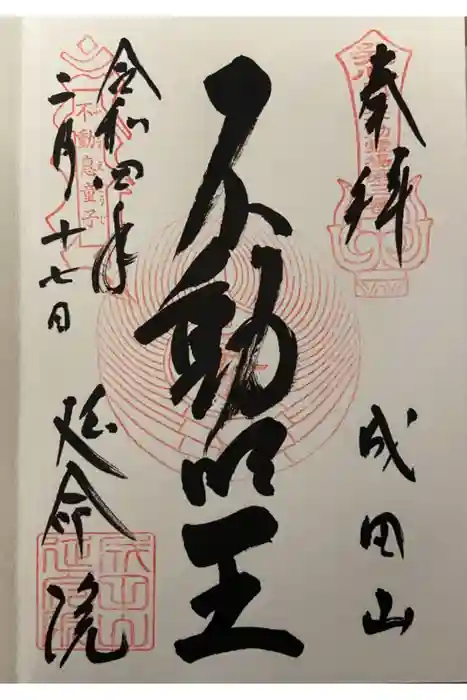 奉拝
成田山
不動明王
令和四年
二月十七日
延命院
不動息童子